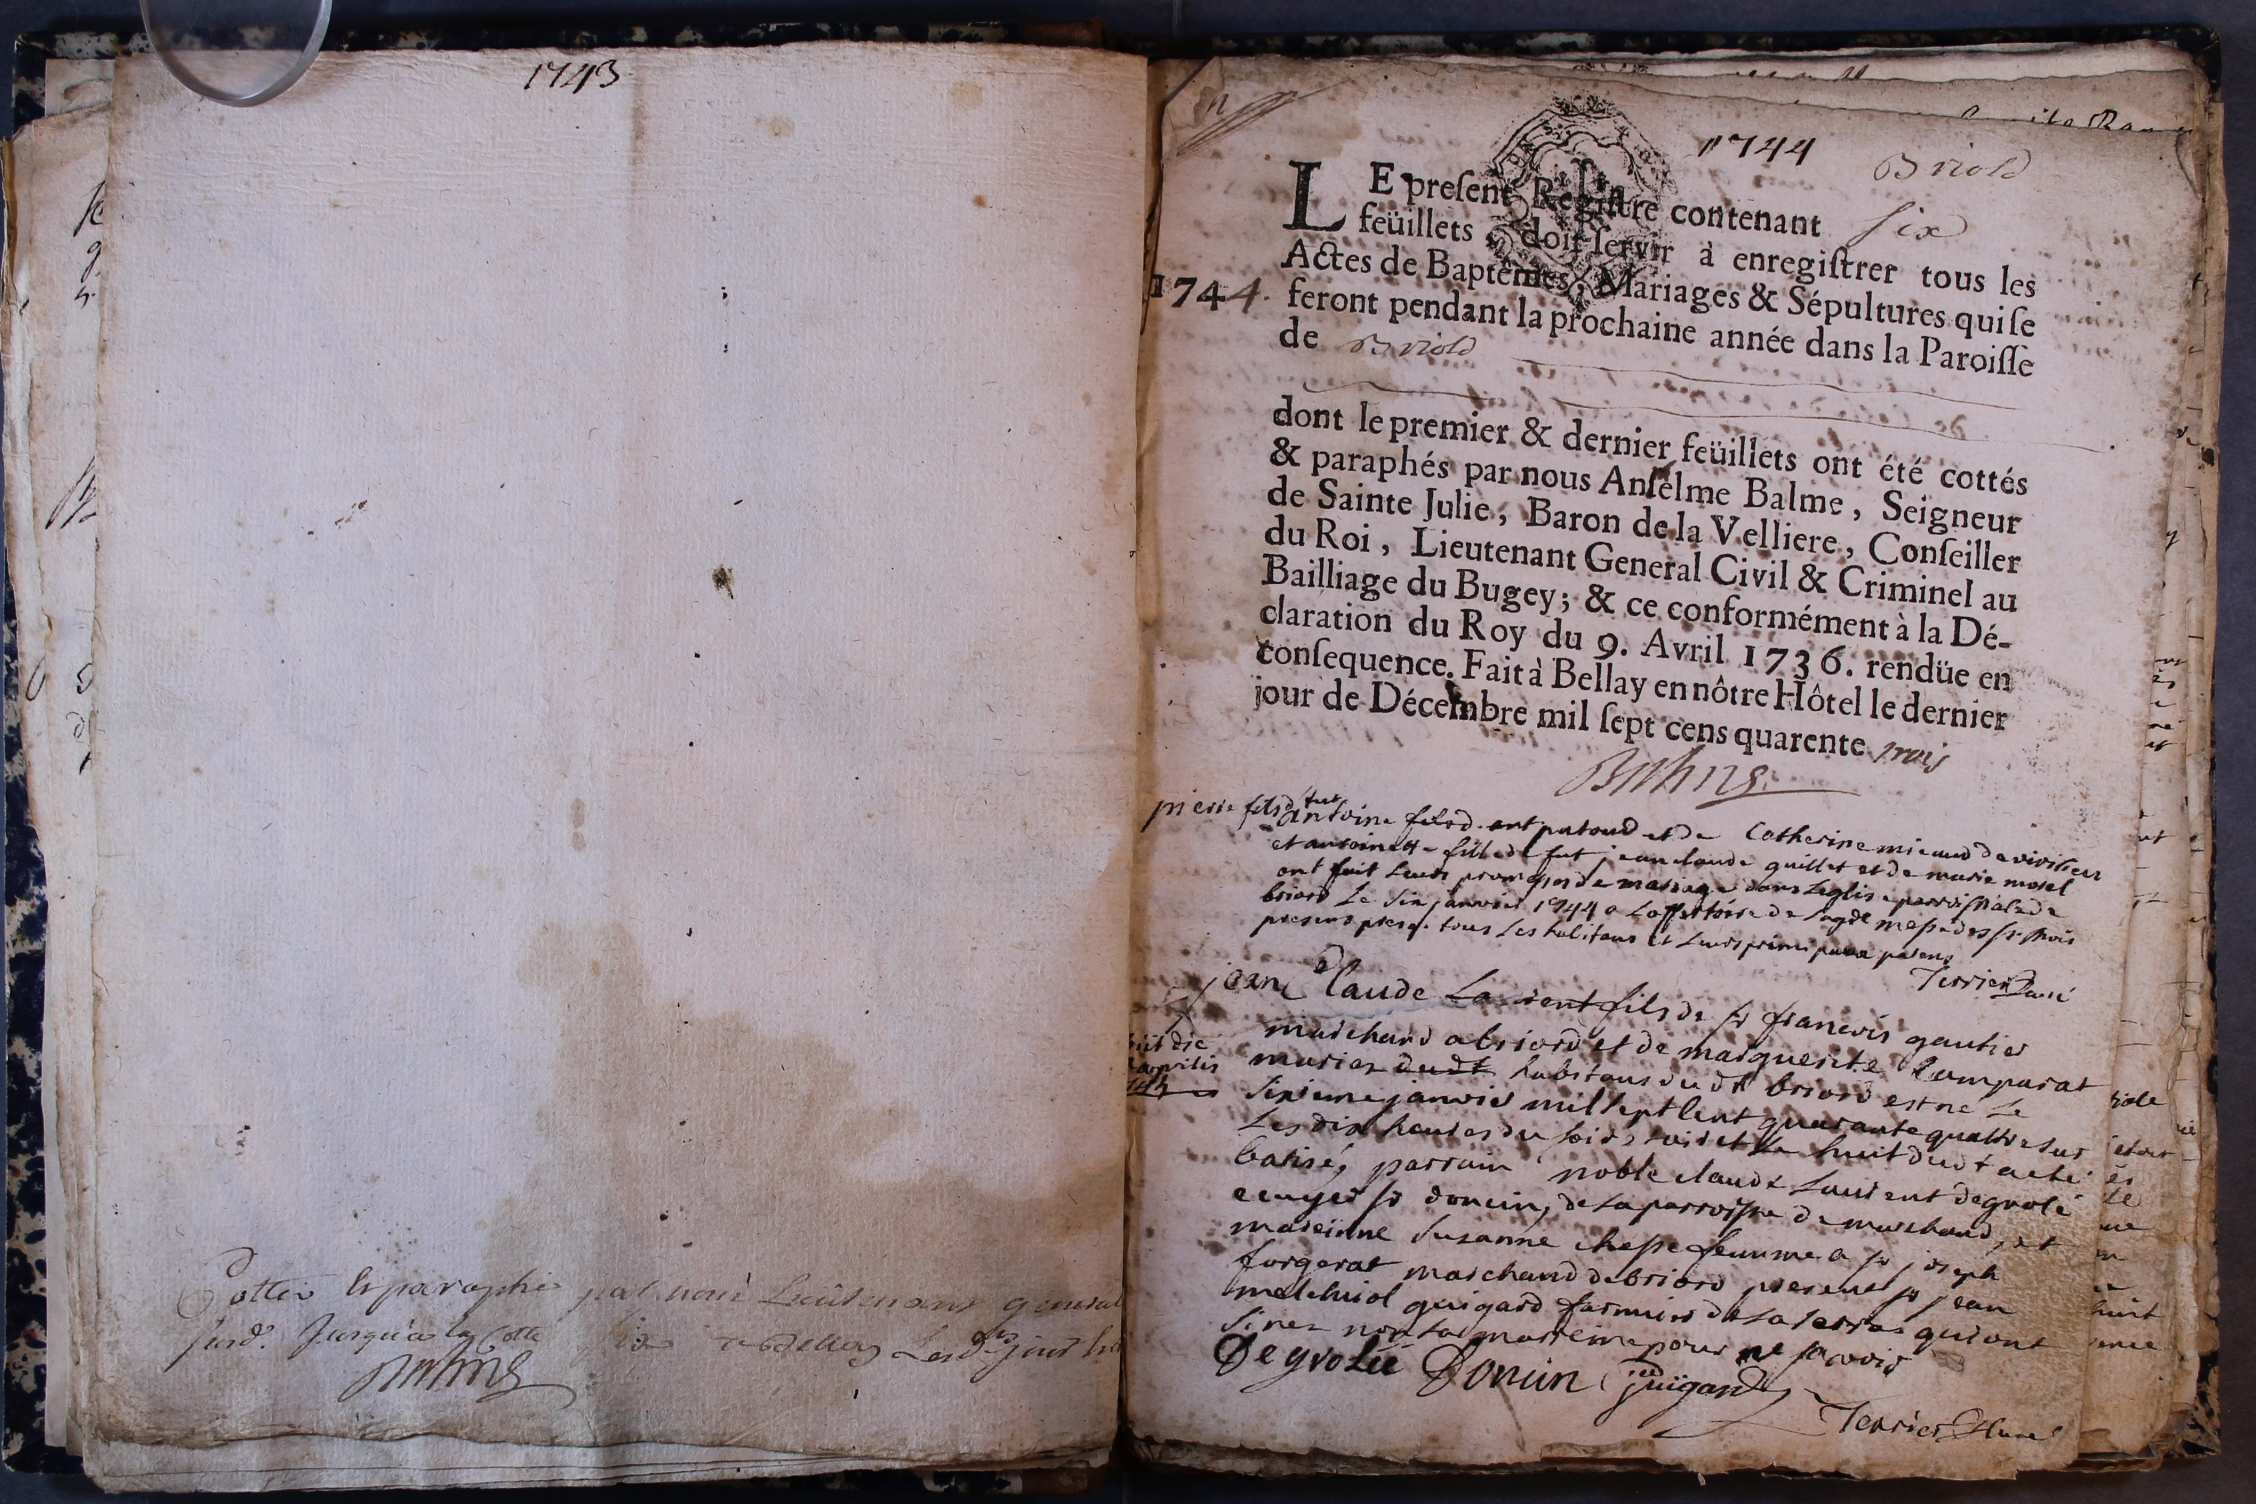 1743
Cotté et paraphé par nous Lieutenant general
susd. jusqu'a la Cotte six
1744
Briord
LE preſent Regiſtre contenant ſix
feüillets, doit ſervir à enregiſtrer tous les
Actes de Baptêmes, Mariages & Sépultures qui ſe
1744.
feront pendant la prochaine année dans la Paroiſſe
de Briord
dont le premier & dernier feüillets ont été cottés
& paraphés par nous Anſelme Balme, Seigneur
de Sainte Julie, Baron de la Velliere, Conſeiller
du Roi, Lieutenant General Civil & Criminel au
Bailliage du Bugey; & ce conformément à la Dé-
claration du Roy du 9. Avril 1736. rendüe en
conſequence. Fait à Bellay en nôtre Hôtel le dernier
jour de Décembre mil ſept cens quarente trois
Balme
pierre fils d fut
antoine fils d. ant patoud et de Catherine micaud de
et antoinette fille de fut jean claude quillet et de marie morel
ont fait leurs promesses de mariage dans leglise parroissiale de
briord Le six janvier 1744 a Loffertoire de la messe
presens presq. tous Les habitans et Leurs principaux parens
Terrier Curé
jean Claude Laurent fils de sr francois gautier
marchand a briord et de marguerite Comparat
mariez dudt habitans du dt briord est né Le
sixieme janvier mil sept cent quarante quattre sur
Les dix heures du soir et Le huit dudt a eté
batisé, parrain noble claude Laurent degrolé
ecuyer sr doncin, de La parroisse de marchand, et
mareinne Suzanne chesse femme a sr joseph
forgerat marchand de briord presens sr jean
melchiol guigard farmier de La terre qui ont
sinez non La marreine pour ne scavoir
Degrolée Doncin Guigard
Terrier Curé